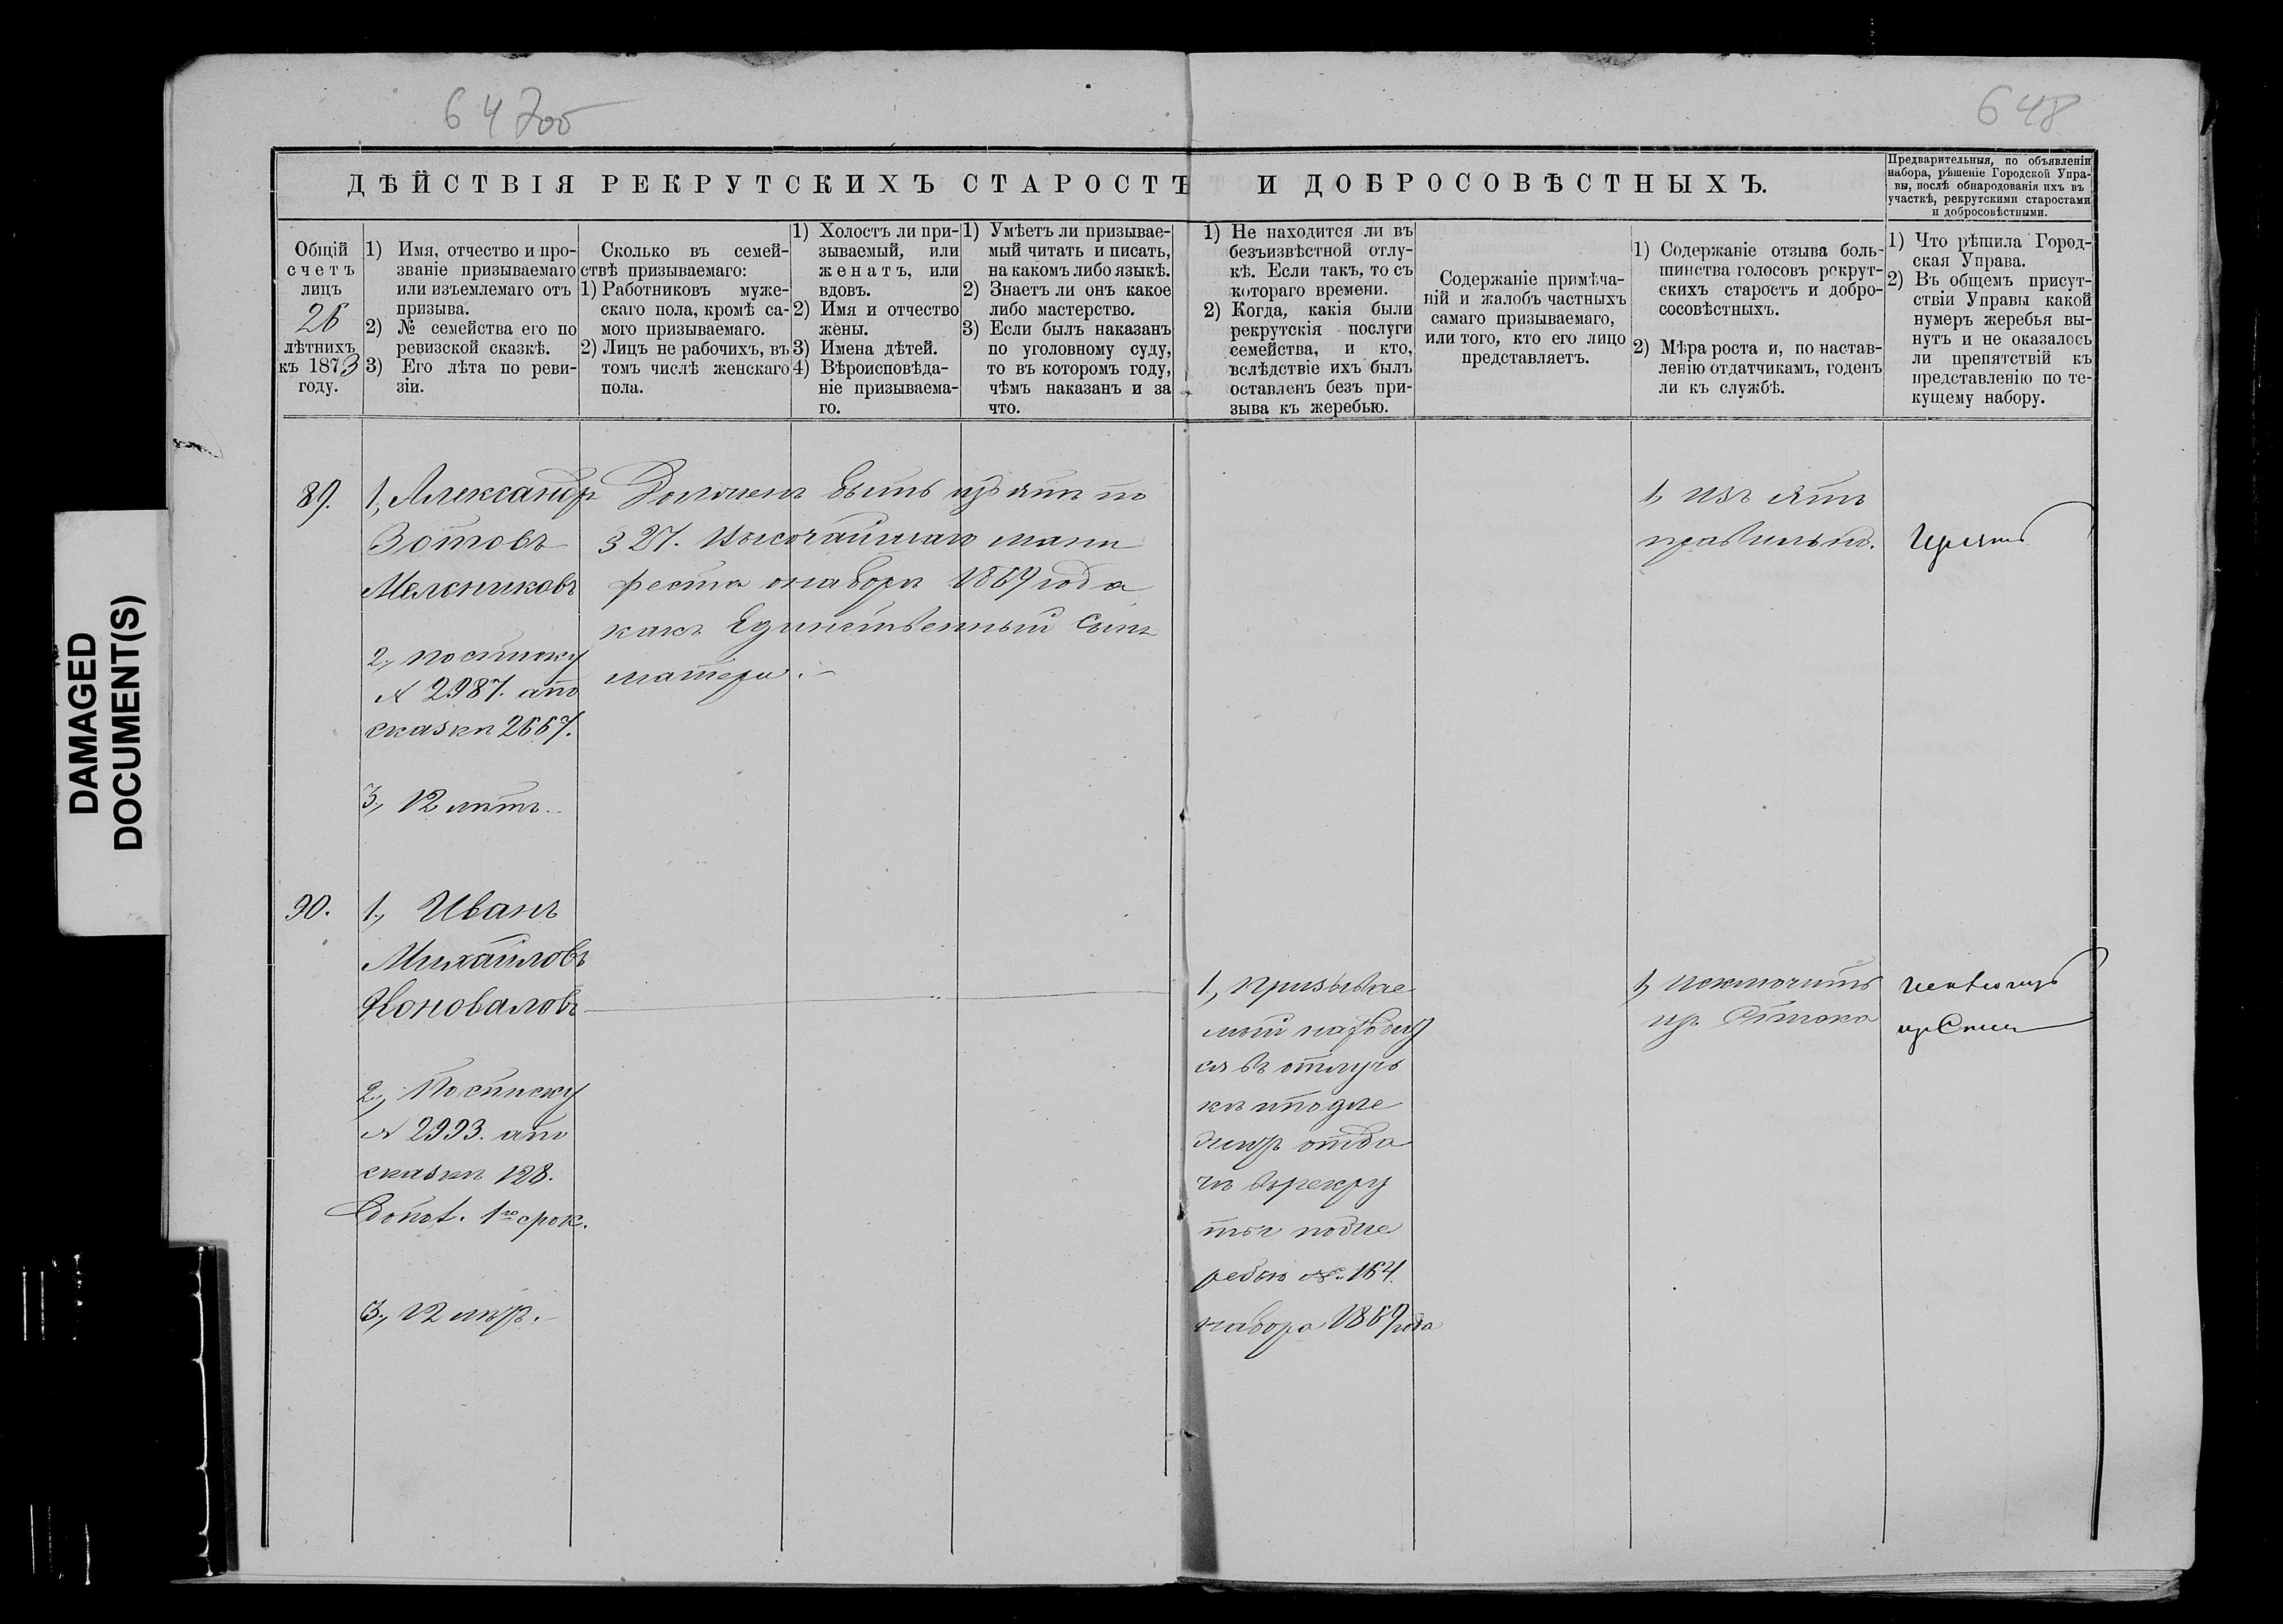 64700
648
ДѢЙСТВІЯ РЕКРУТСКИХЪ СТАРОСТЪ И ДОБРОСОВѢСТНЫХЪ.
Предварительныя, по объявленіи
набора, рѣшеніе Городской Упра-
вы, послѣ обнародованія ихъ въ
участкѣ, рекрутскими старостами
и добросовѣстными.
Общій
счетъ
лицъ
26
лѣтнихъ
къ 1873
году.
1) Имя, отчество и про-
званіе призываемаго
или изъемлемаго отъ
призыва.
2) № семейства его по
ревизской сказкѣ.
3) Его лѣта по реви-
зіи.
Сколько въ семей-
ствѣ призываемаго:
1) Работниковъ муже-
скаго пола, кромѣ са-
мого призываемаго.
2) Лицъ не рабочихъ, въ
томъ числѣ женскаго
пола.
1) Холостъ ли при-
зываемый, или
женатъ, или
вдовъ.
2) Имя и отчество
жены.
3) Имена дѣтей.
4) Вѣроисповѣда-
ніе призываема-
го.
1) Умѣетъ ли призывае-
мый читать и писать,
на какомъ либо языкѣ.
2) Знаетъ ли онъ какое
либо мастерство.
3) Если былъ наказанъ
по уголовному суду,
то въ которомъ году,
чѣмъ наказанъ и за
что.
1) Не находится ли въ
безъизвѣстной отлу-
кѣ. Если такъ, то съ
котораго времени.
2) Когда, какія были
рекрутскія послуги
семейства, и кто,
вслѣдствіе ихъ былъ
оставленъ безъ при-
зыва къ жеребью.
Содержаніе примѣча-
ній и жалобъ частныхъ
самаго призываемаго,
или того, кто его лицо
представляетъ.
1) Содержаніе отзыва боль-
шинства голосовъ рекрут-
скихъ старостъ и добро-
сосовѣстныхъ.
2) Мѣра роста и, по настав-
ленію отдатчикамъ, годенъ
ли къ службѣ.
1) Что рѣшила Город-
ская Управа.
2) Въ общемъ присут-
ствіи Управы какой
нумеръ жеребья вы-
нутъ и не оказалось
ли препятствій къ
представленію по те-
кущему набору.
89.
1, Александръ
Зотовъ
Мельниковъ
2., по списку
№ 2987. апо
сказкѣ 2667.
3., 12 лѣтъ.
Долженъ быть изъятъ по
§ 27. Высочайшаго мани
феста о наборѣ 1869 года
какъ Единственный Сынъ
матери.
1, Изъятъ
правильно.
90.
1., Иванъ
Михайловъ
Коноваловъ
2., По списку
№ 2993. апо
сказкѣ 128.
1го срок.
3., 12 лѣтъ.
1, Призывае
мый находит
ся въ отлуч
кѣ и подле
житъ отда
чѣ въ рекру
ты по же
ребью № 164.
набора 1869 года
1, Исключить
изъ Списка
DAMAGED
DOCUMENT(S)